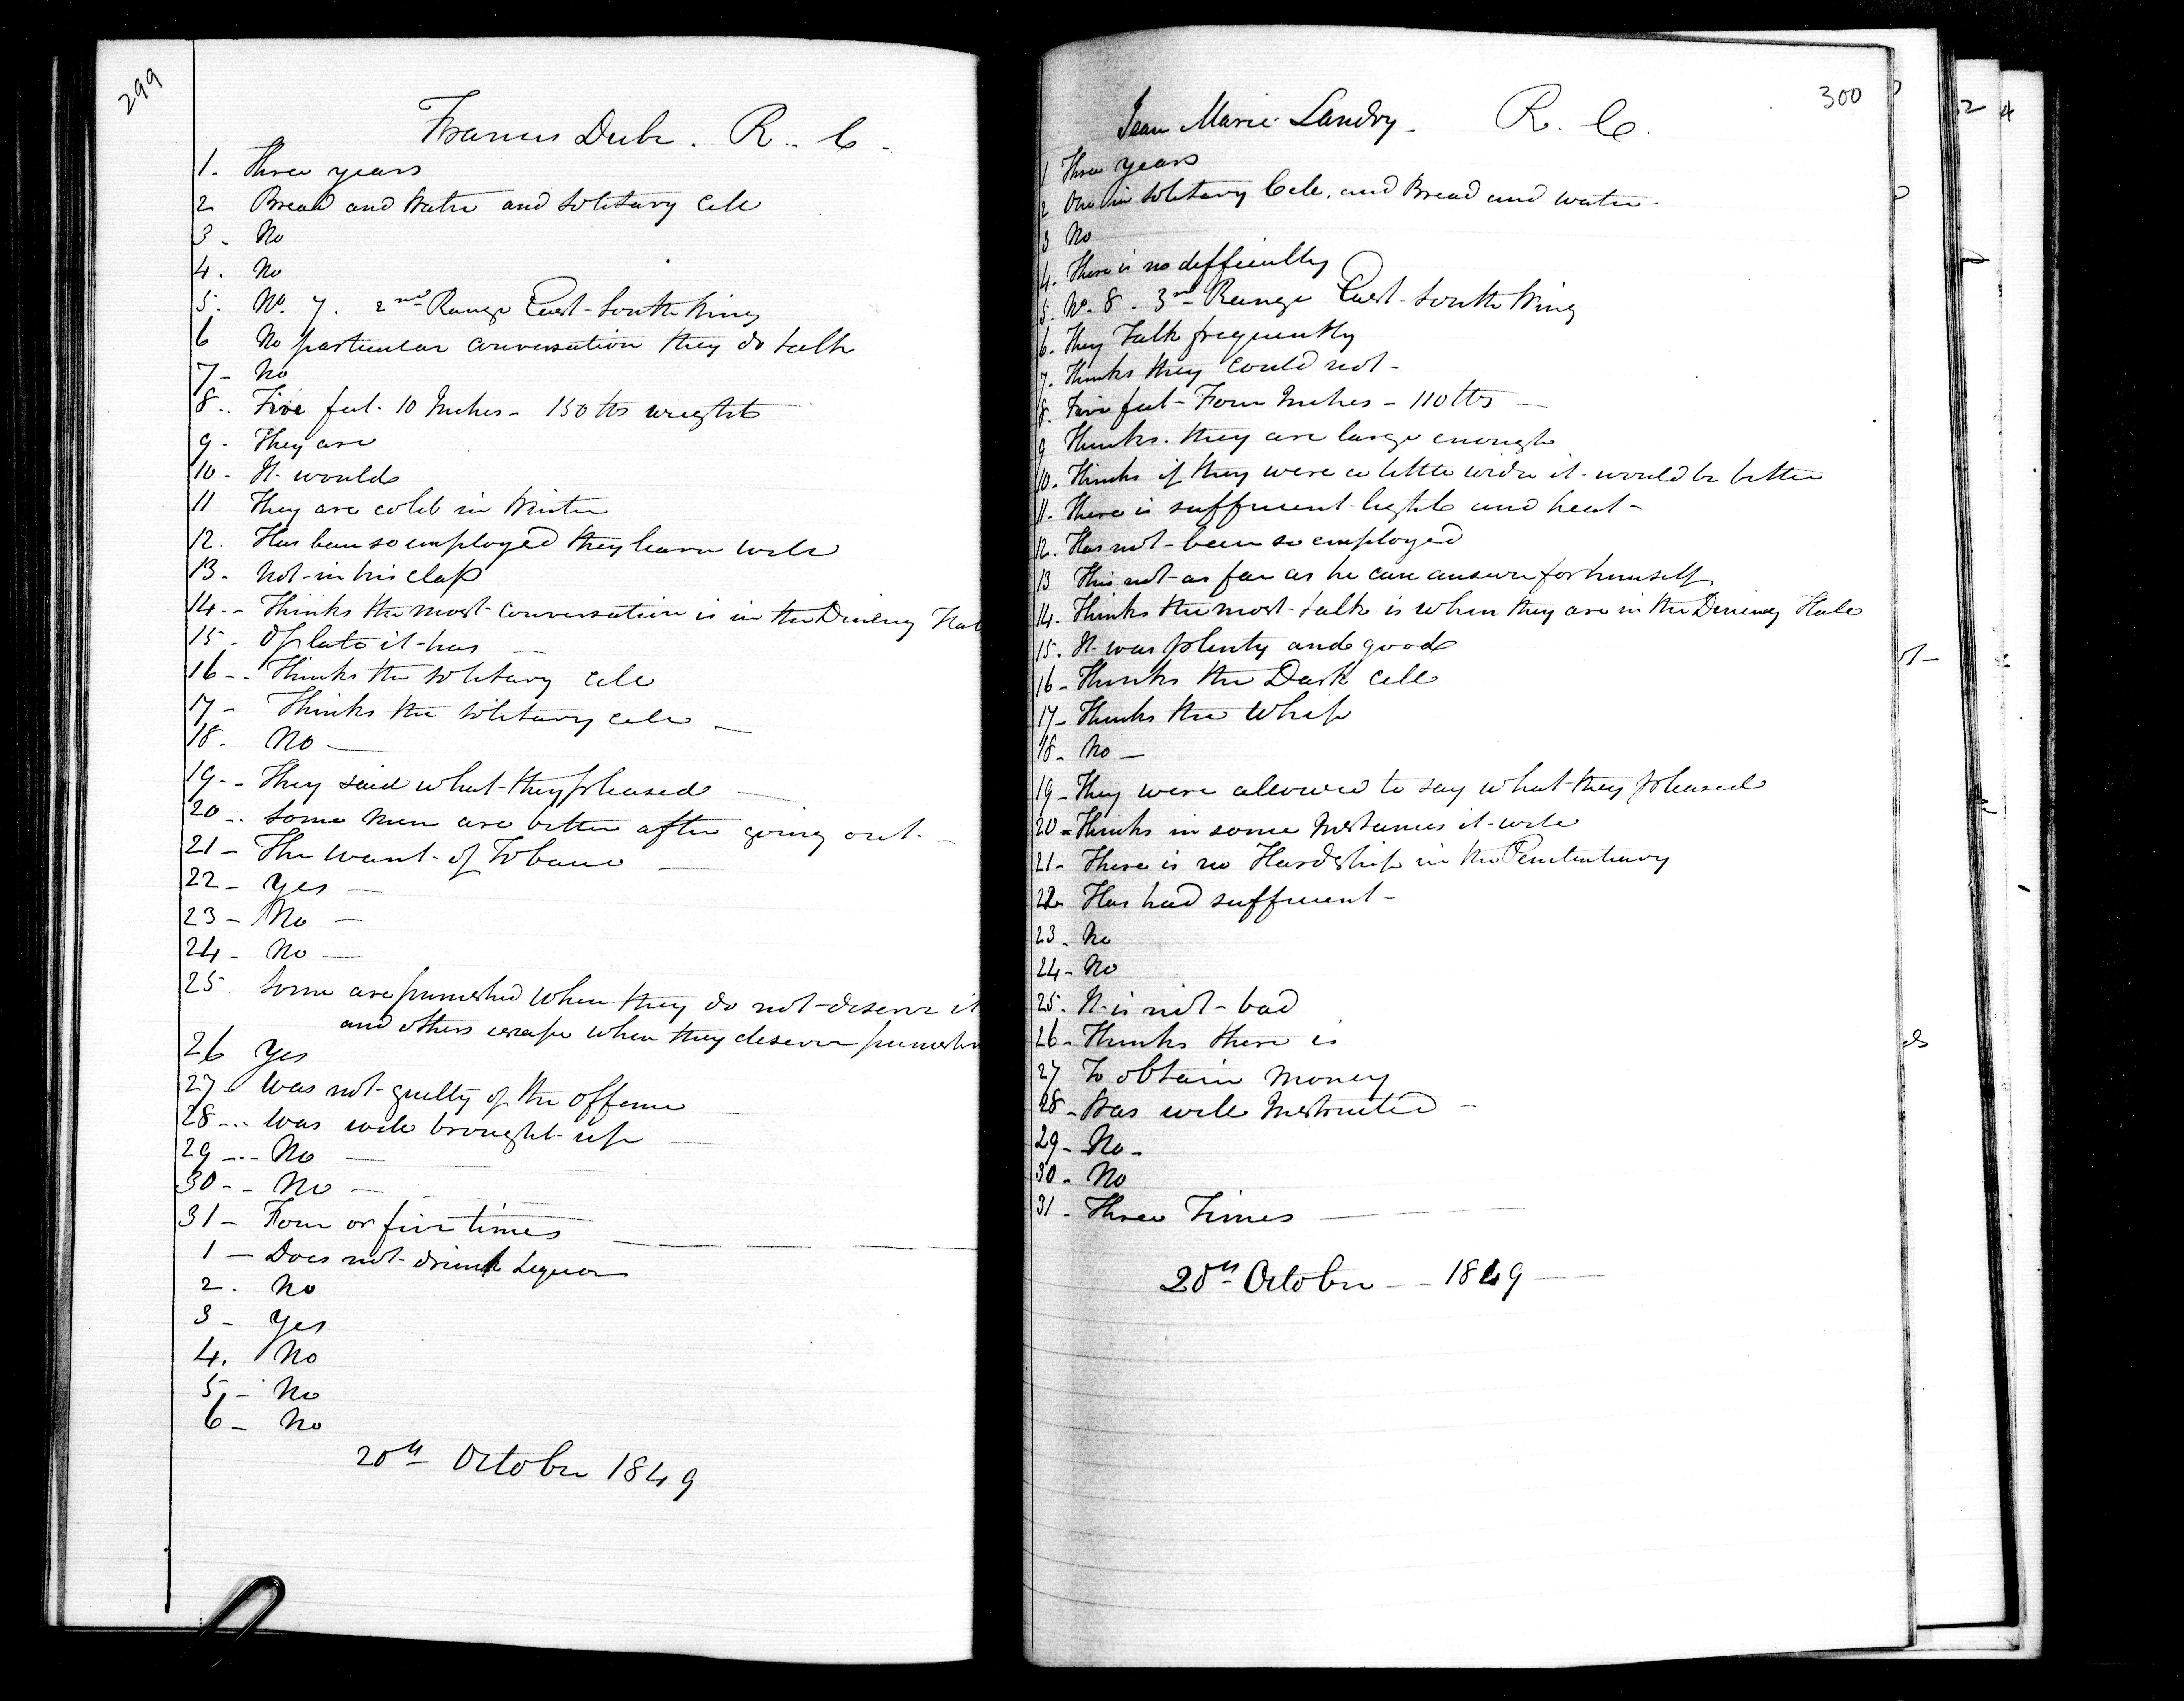 299
Francis Dube. R.. C.
1. Three years
2 Bread and Water and Solitary Cell
3. No
4. No
5. No. 7. 2nd Range East South Wing
6 No particular conversation they do talk
7- No
8.. Five feet 10 Inches - 150 lbs weight
9. They are
10- It would
11 They are cold in Winter
12. Has been so employed they learn well
13. Not in his class
14.- Thinks the most conversation is in the Dining Hall
15. Of late it has
16-. Thinks the Solitary Cell
17- Thinks the Solitary cell -
18. No -
19-. They said what they pleased
20.. Some men are better after going out.
21- The want of Tobacco
22- Yes -
23- No -
24- No -
25. Some are punished when they do not deserve it
and others escape when they deserve
26 Yes
27. Was not guilty of the offence
28... Was well brought up
29 -.- No
30-- No -
31- Four or five times
1- Does not drink Liquor
2. No
3- Yes
4. No
5,- No
6- No
20th October 1849
300
Jean Marie Landry. R. C.
1 Three years
2 One in Solitary Cell, and Bread and water -
3 No
4. There is no difficulty
5. No. 8. 3rd Range East South Wing
6. They Talk frequently
7. Thinks they could not -
8. Five feet - Four Inches - 110 lbs -
9 Thinks they are large enough
10. Thinks if they were a little wider it would be better
11. There is sufficient light and heat -
12. Has not been so employed
13 This not as far as he can answer for himself
14. Thinks the most talk is when they are in the Dining Hall
15. It was plenty and good
16- Thinks the Dark Cell
17- Thinks the Whip
18- No -
19- They were allowed to say what they pleased
20- Thinks in some Instances it will
21- There is no Hardship in the Penitentiary
22. Has had sufficient -
23. No
24- No
25. It is not bad
26- Thinks there is
27 To obtain money
28- Was well Instructed -
29- No -
30- No
31- Three Times
20th October - - 1849